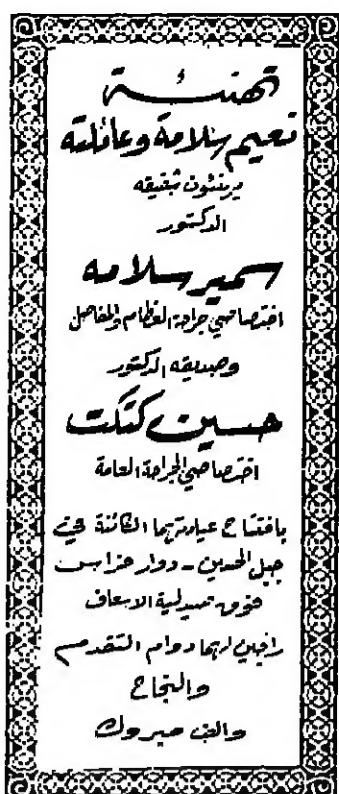 تهنئة
نعيم سلامة وعائلته
يهنئون شقيقه
الدكتور
سمير سلامه
اختصاصي جراحة العظام والمفاصل
وصديقه الدكتور
حسين كتكت
اختصاصي الجراحة العامة
بافتتاح عيادتهما الكائنة في
جبل الحسين - دوار فراس
فوق صيدلية الاسعاف
راجين لهما دوام التقدم
والنجاح
والف مبروك